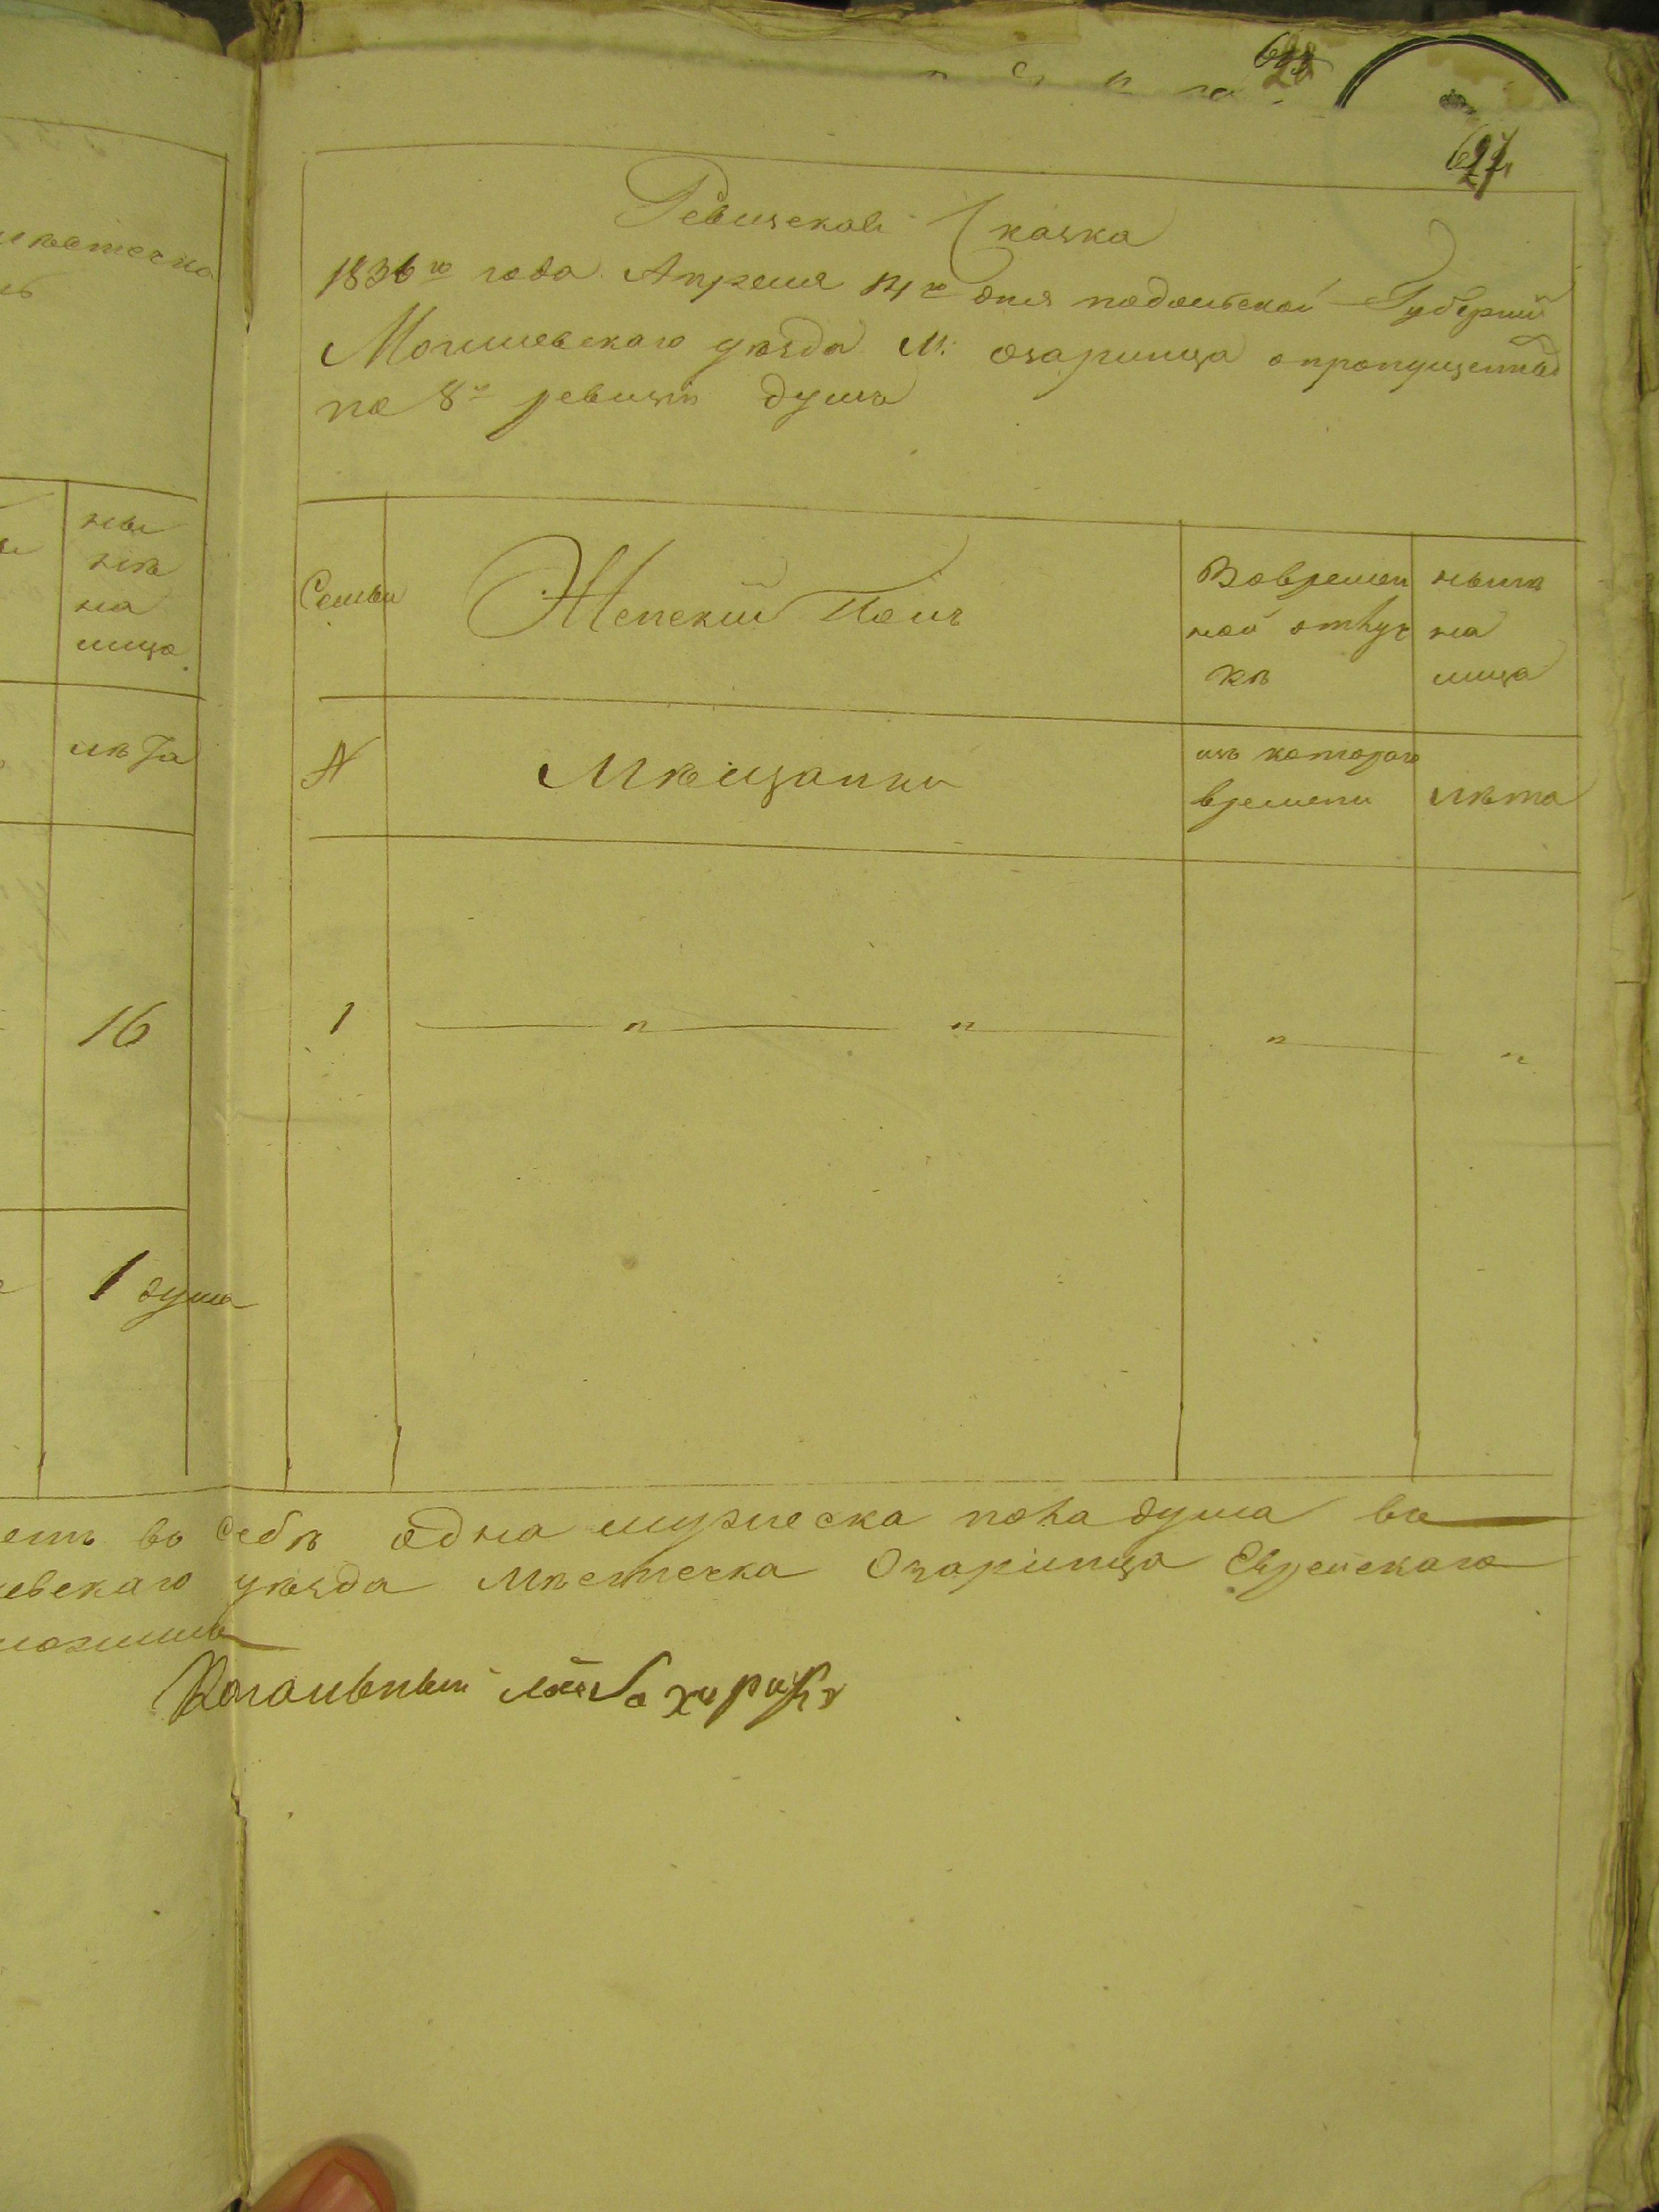 627
Ревизская Сказка
1836го года Апреля 14го дня подольской Губернии
Могилевскаго уѣзда М: озаринца опропущенныхъ
по 8й ревизiи душъ
местечка
ны
нѣ
на
лицо
лѣта
16
1 душа
Семьи
Женский Полъ
Вовремен
ной отлуч
кѣ
нынѣ
на
лица
№
Мѣщанки
изъ котораго
времени
лѣта
1 " " " "
етъ во себѣ одна мужеска пола душа
евскаго уѣзда Мѣстечка Озаринца Еврейскаго
Кагальный